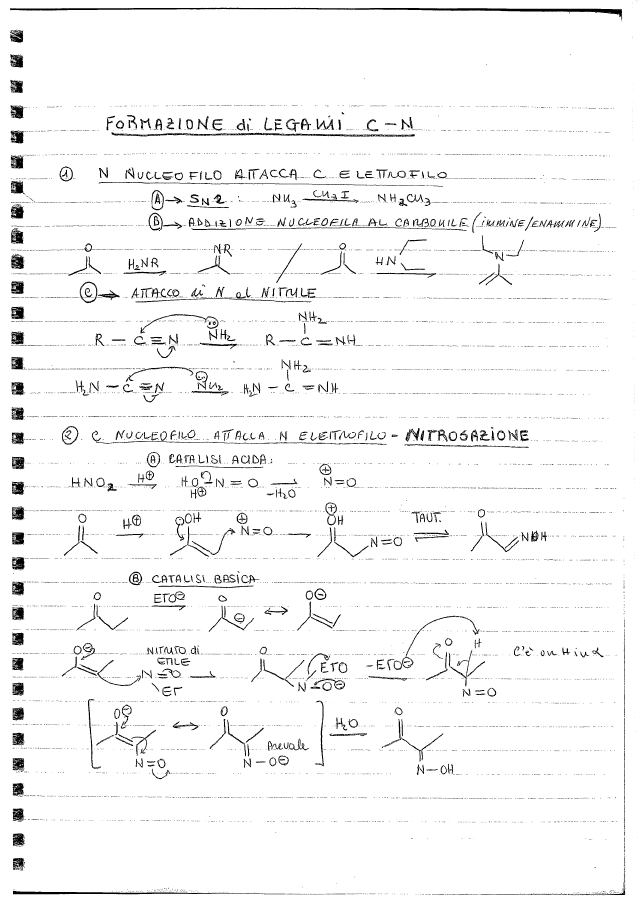 FORMAZIONE di LEGAMI C-N
① N NUCLEOFILO ATTACCA C ELETTROFILO
Ⓐ → SN2 : NH3 CH3I → NH2CH3
Ⓑ → ADDIZIONE NUCLEOFILA AL CARBONILE (IMMINE/ENAMMINE)
O H2NR → NR / O HN → N
Ⓒ → ATTACCO di N al NITRILE
NH2
R - C ≡ N NH2 → R - C = NH
NH2
H2N - C ≡ N NH2 → H2N - C = NH
② C NUCLEOFILO ATTACCA N ELETTROFILO - NITROSAZIONE
Ⓐ CATALISI ACIDA:
HNO2 H⊕ → HO N = O H⊕ → -H2O ⊕ N=O
O H⊕ → OH ⊕ N=O → ⊕ OH N=O TAUT. ⇌ O NOH
Ⓑ CATALISI BASICA
O ETO⊖ → O ⊖ ↔ O⊖
O⊖ NITRITO di ETILE N=O ET → O ETO N-O⊖ -ETO⊖ → O H N=O C'è un H in α
[ O⊖ N=O ↔ O N-O⊖ Prevale ] H2O → O N-OH